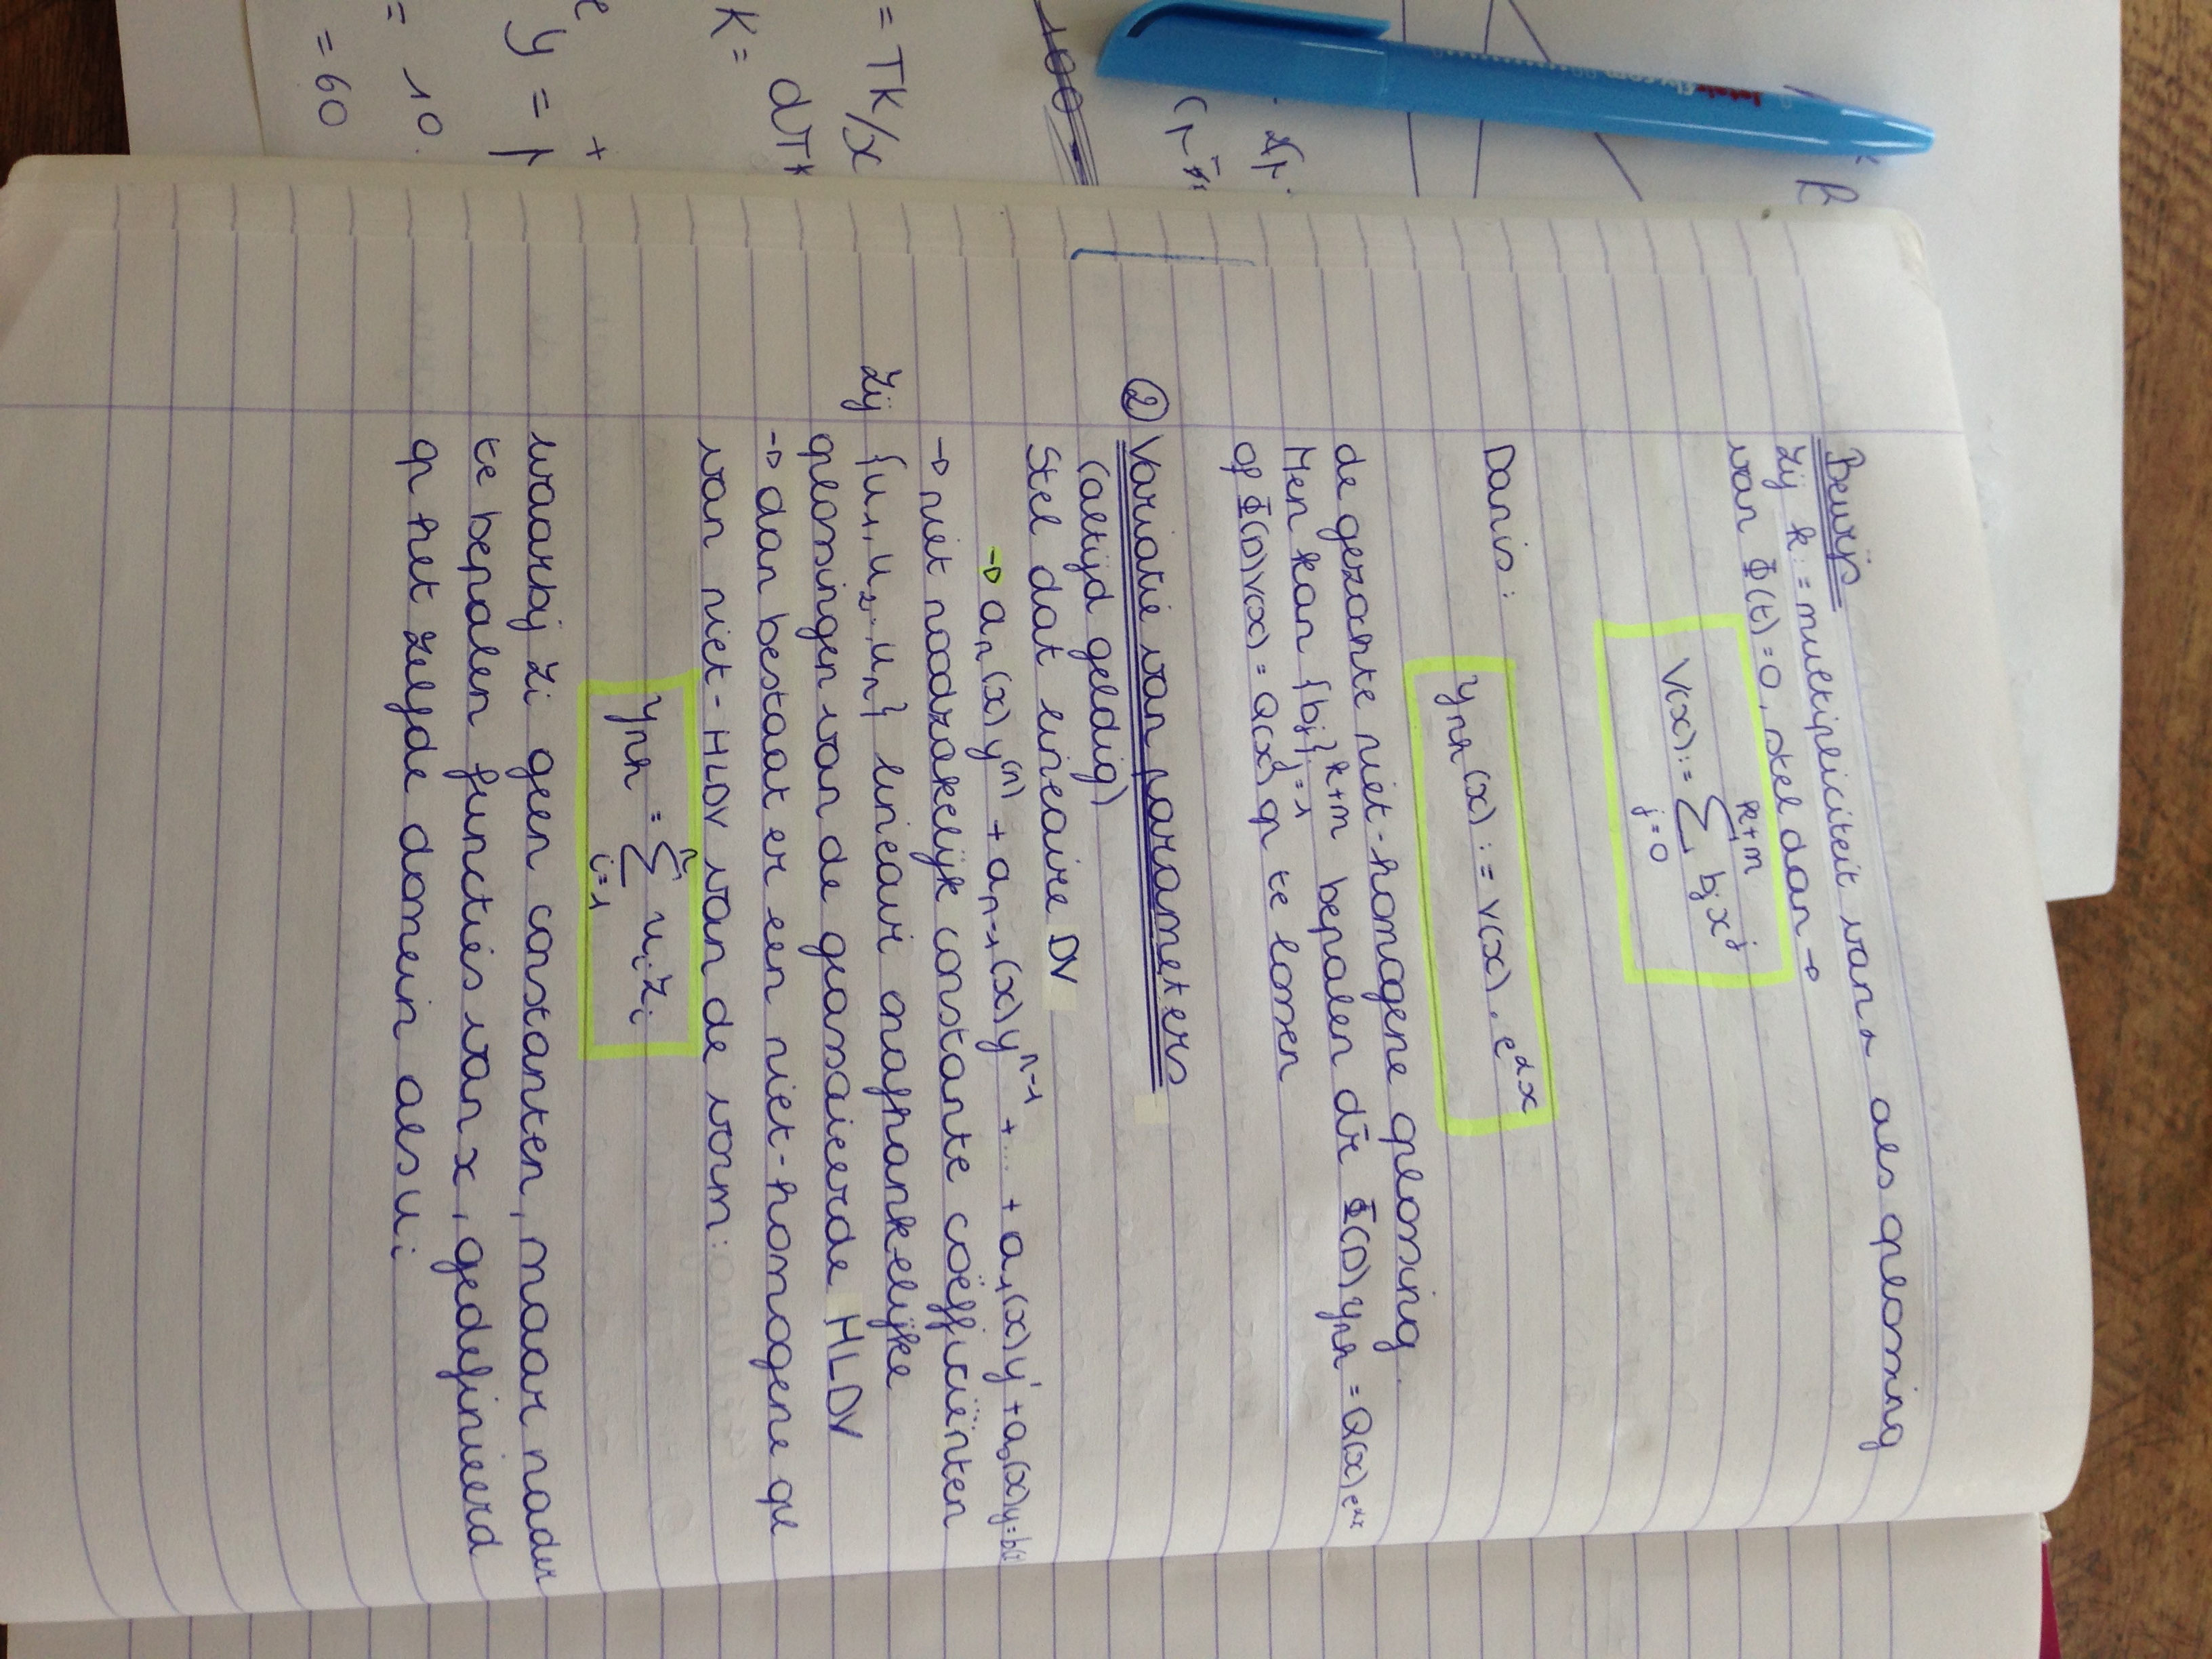 Bewijs
Zij k := multipliciteit van α als oplossing
van Φ(t) = 0, stel dan →
V(x) := Σ_{j=0}^{k+m} b_j x^j
Dan is :
y_nh (x) := V(x) . e^{αx}
de gezochte niet-homogene oplossing.
Men kan {b_j}_{j=1}^{k+m} bepalen dr Φ(D) y_nh = Q(x) e^{αx}
of Φ(D)V(x) = Q(x) op te lossen
② Variatie van parameters
(altijd geldig)
Stel dat lineaire DV
→ a_n (x) y^{(n)} + a_{n-1} (x) y^{n-1} + ... + a_1 (x) y' + a_0 (x) y = b(x
→ niet noodzakelijk constante coëfficiënten
Zij {u_1, u_2 .. u_n} lineair onafhankelijke
oplossingen van de geassocieerde HLDV
→ dan bestaat er een niet-homogene opl
van niet-HLDV van de vorm:
y_nh = Σ_{i=1}^{n} u_i z_i
waarbij z_i geen constanten, maar nader
te bepalen functies van x, gedefinieerd
op het zelfde domein als u_i
100
= TK/x
dTK
K =
y =
= 10.
= 60